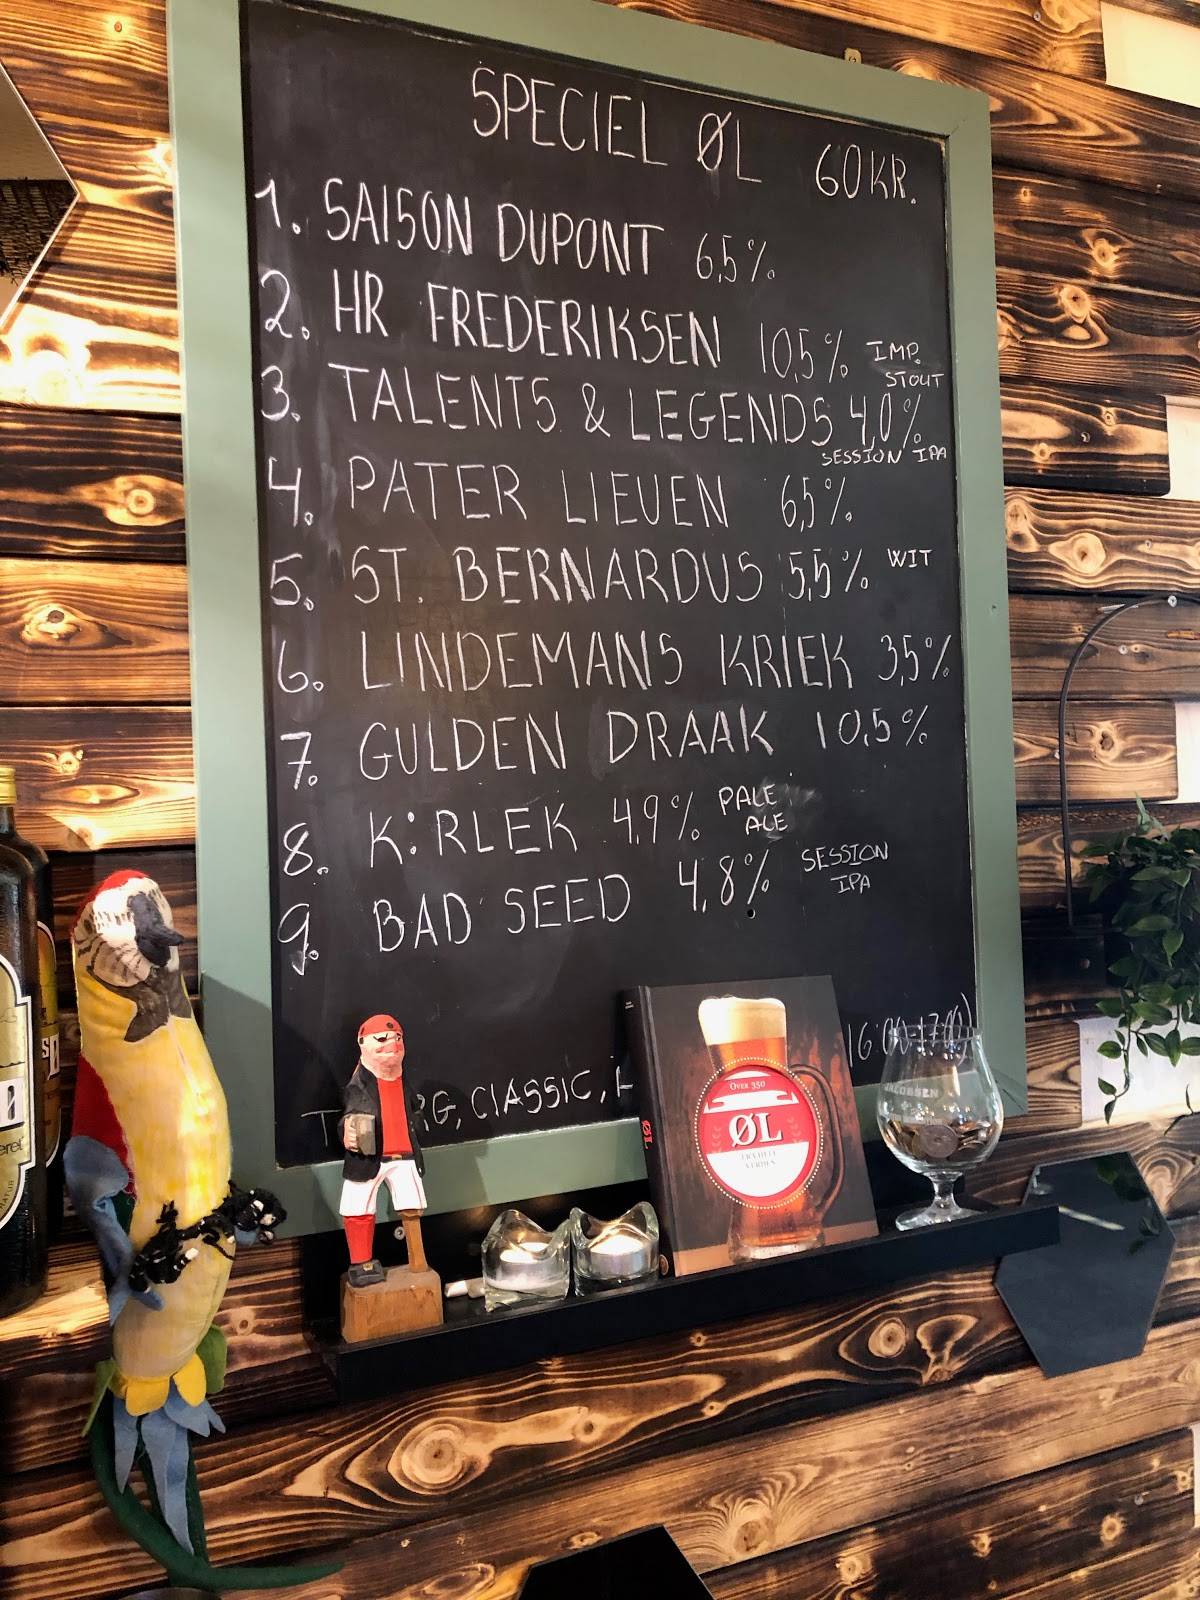 SPECIEL ØL 60 KR.
1. SAISON DUPONT 6,5%
2. HR FREDERIKSEN 10,5% IMP. STOUT
3. TALENTS & LEGENDS 4,0%
SESSION IPA
4. PATER LIEVEN 6,5%
5. ST. BERNARDUS 5,5% WIT
6. LINDEMANS KRIEK 3,5%
7. GULDEN DRAAK 10,5%
8. K:RLEK 4,9% PALE ALE
9. BAD SEED 4,8% SESSION IPA
16:00-17:00)
T RG, CLASSIC, H
OVER 350
ØL
FRA HELE
VERDEN
ØL
JACOBSEN